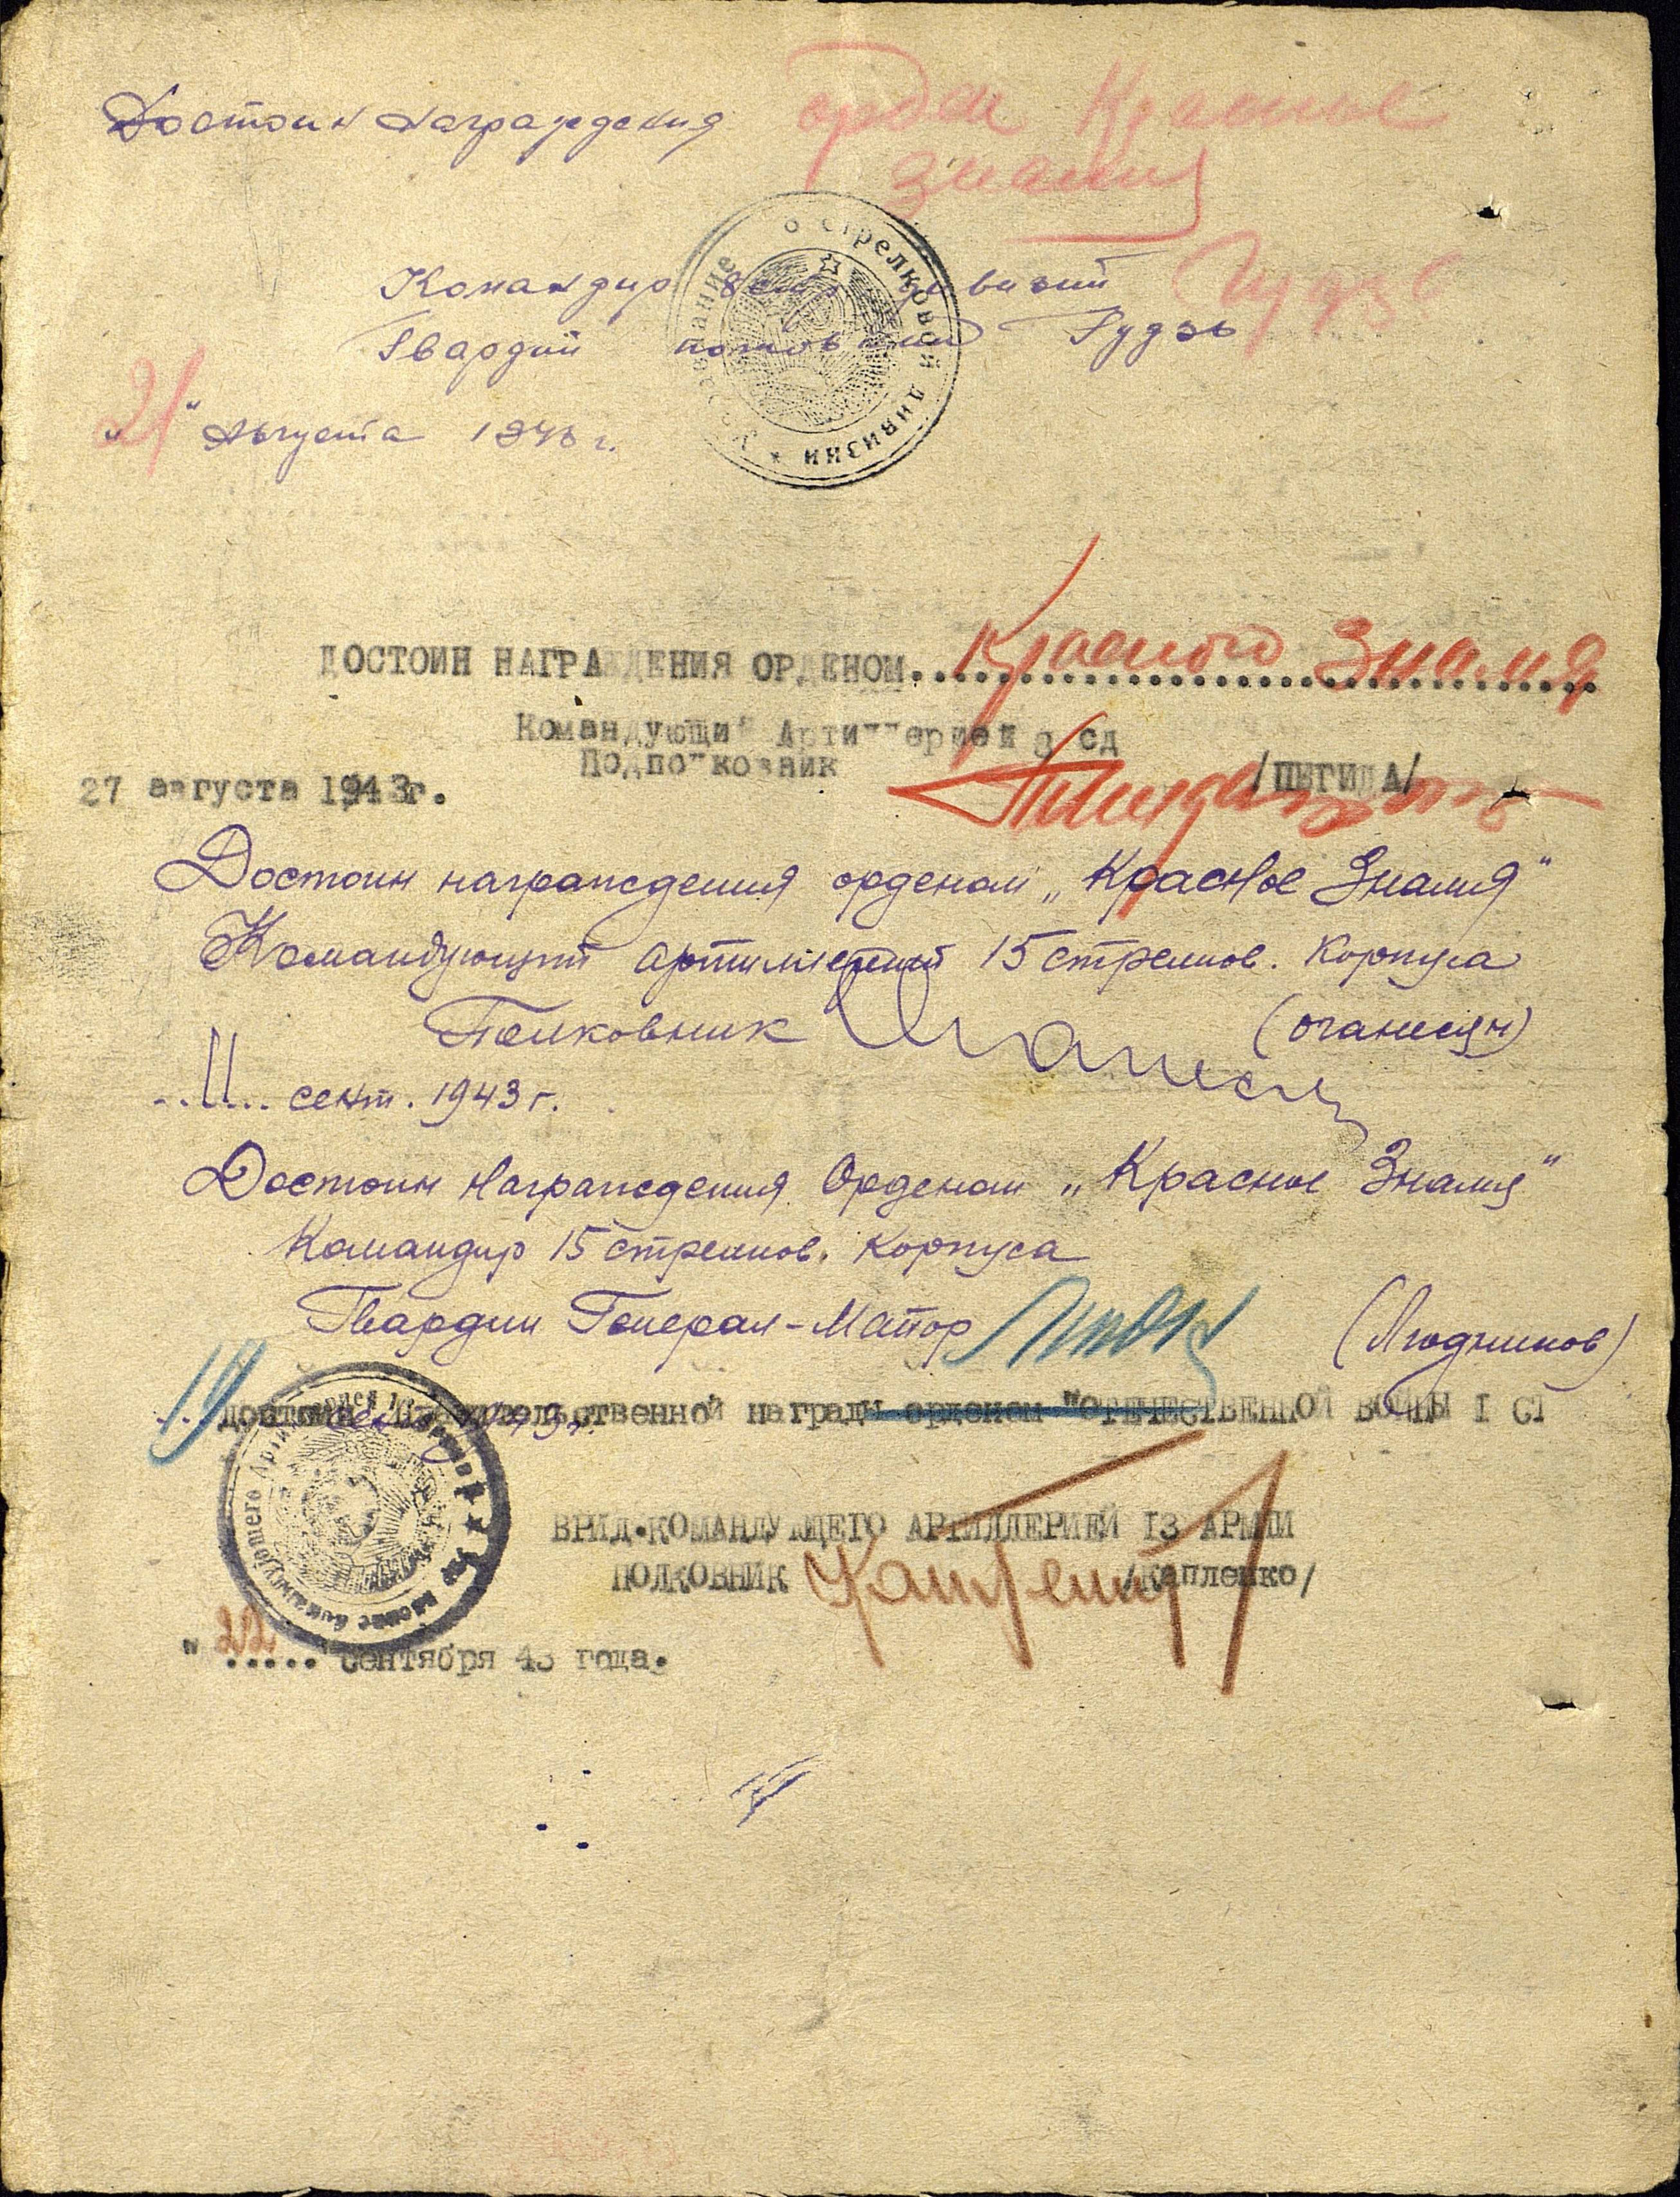 Достоин награждения орден Красное
знамя
Командир 8 стр. дивизии
Гвардии полковник Гудзь Гудзь
"21" Августа 1943 г.
о стрелковой дивизии *
ДОСТОИН НАГРАЖДЕНИЯ ОРДЕНОМ Красного Знамя
Командующий Артиллерией 8 сд
Подполковник /ПЕГИДА/
27 августа 1943г.
Достоин награждения орденом „Красное Знамя"
Командующий артиллерией 15 стрелков. Корпуса
Полковник (Оганесян)
..11.. сент. 1943 г.
Достоин Награждения Орденом „Красное Знамя"
Командир 15 стрелков. Корпуса
Гвардии Генерал-Майор (Людников)
19
достоин Правительственной награды орденом "ОТЕЧЕСТВЕННОЙ ВОЙНЫ I СТ
ВРИД.КОМАНДУЮЩЕГО АРТИЛЛЕРИЕЙ I3 АРМИИ
ПОЛКОВНИК /Капленко/
"22" сентября 43 года.